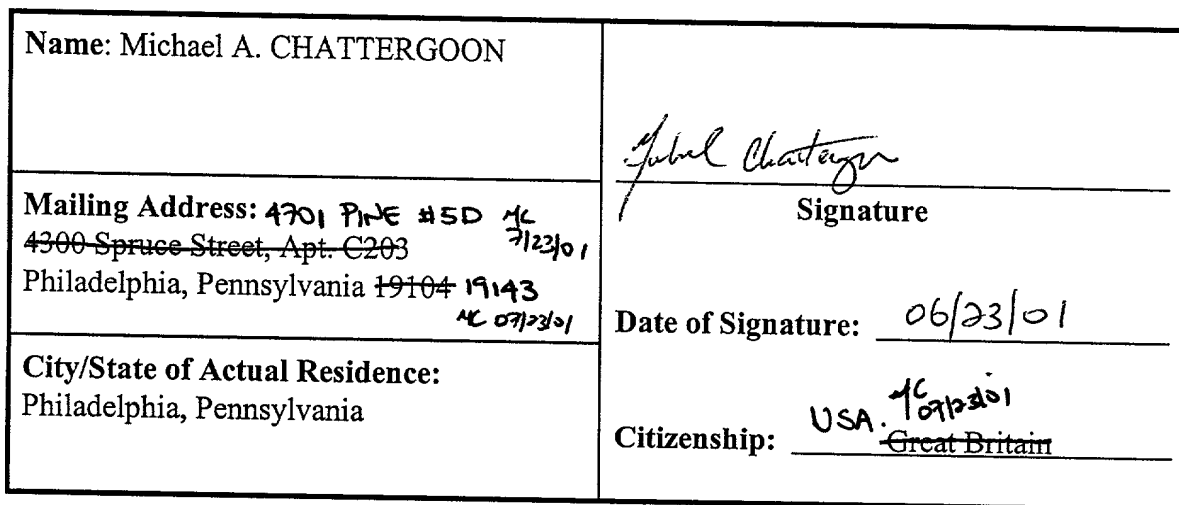 Name: Michael A. CHATTERGOON
Mailing Address: 4701 PINE #5D MC
7/23/01
4300 Spruce Street, Apt. C203
Philadelphia, Pennsylvania 19104 19143
MC 07/23/01
City/State of Actual Residence:
Philadelphia, Pennsylvania
Signature
Date of Signature: 06/23/01
MC
07/23/01
Citizenship: USA. Great Britain